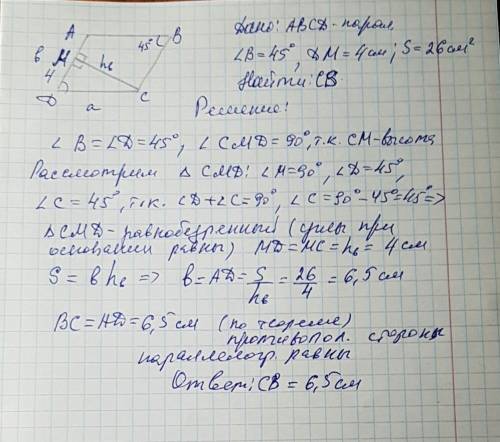 A B 45° в M 4 h_в D a C
Дано: ABCD - парал.
∠B=45°, DM=4см; S=26см²
Найти: CB
Решение:
∠B=∠D=45°, ∠CMD=90°, т.к. CM-высота
Рассмотрим △CMD: ∠M=90°, ∠D=45°,
∠C=45°, т.к. ∠D+∠C=90°, ∠C=90°-45°=45° =>
△CMD - равнобедренный (углы при
основании равны) MD=MC=h_в=4см
S=в h_в => в=AD=S/h_в=26/4=6,5см
BC=AD=6,5см (по теореме)
противопол. стороны
параллелогр. равны
Ответ: CB=6,5см